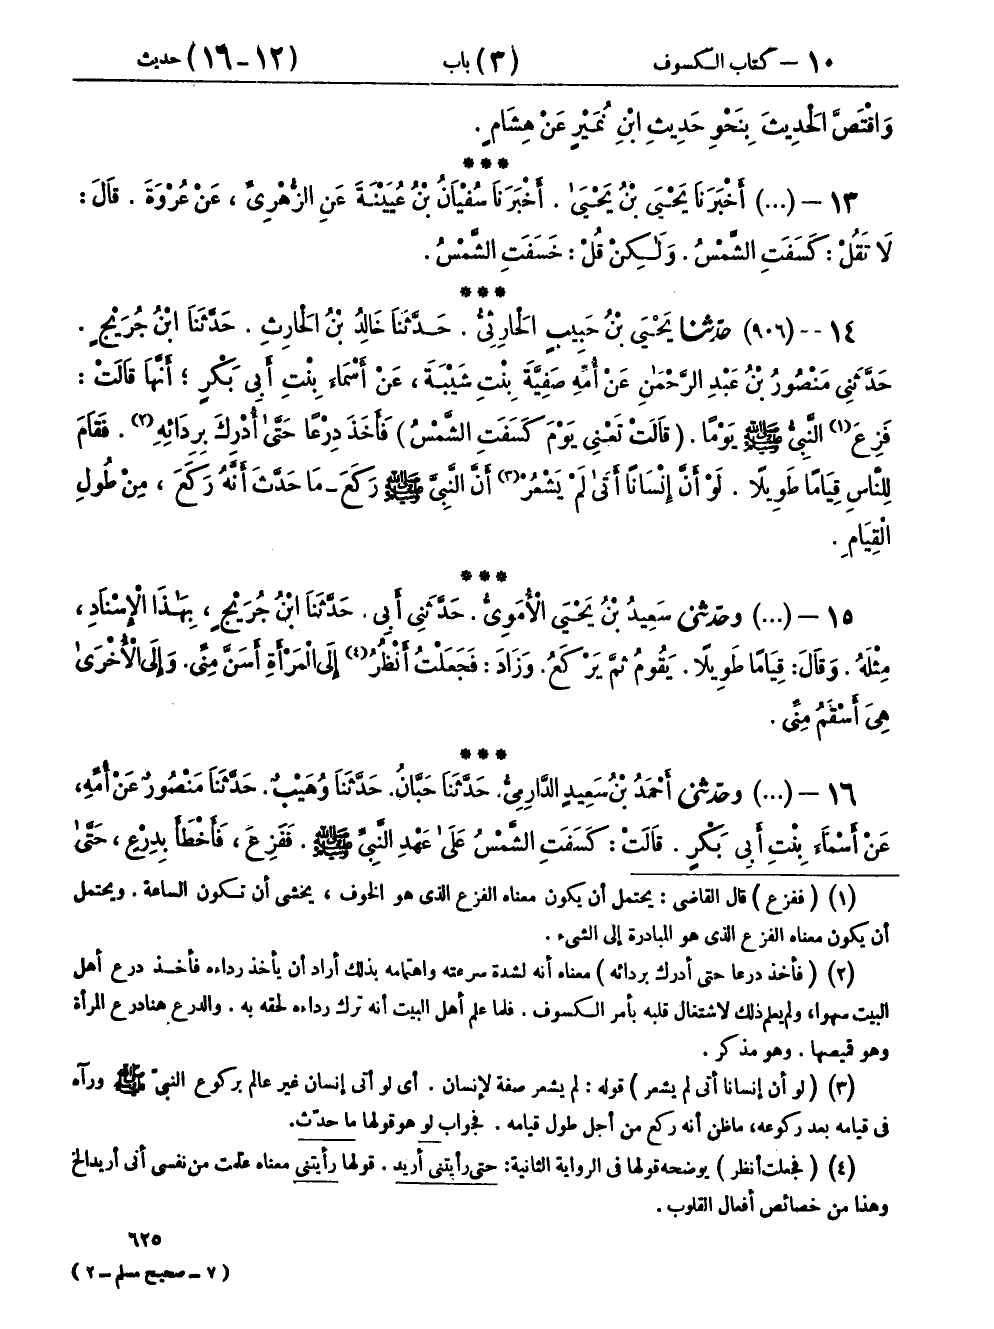 ١٠ – كتاب الكسوف (٣) باب (١٢-١٦) حديث
وَاقْتَصَّ الْحَدِيثَ بِنَحْوِ حَدِيثِ ابْنِ نُمَيْرٍ عَنْ هِشَامٍ.
***
١٣ – (...) أَخْبَرَنَا يَحْيَى بْنُ يَحْيَىٰ . أَخْبَرَنَا سُفْيَانُ بْنُ عُيَيْنَةَ عَنِ الزُّهْرِىِّ ، عَنْ عُرْوَةَ . قَالَ :
لَا تَقُلْ : كَسَفَتِ الشَّمْسُ . وَلَـٰكِنْ قُلْ : خَسَفَتِ الشَّمْسُ .
***
١٤ -- (٩٠٦) حَدَّثَنَا يَحْيَى بْنُ حَبِيبٍ الْحَارِثِىُّ . حَدَّثَنَا خَالِدُ بْنُ الْحَارِثِ . حَدَّثَنَا ابْنُ جُرَيْجٍ .
حَدَّثَنِى مَنْصُورُ بْنُ عَبْدِ الرَّحْمَٰنِ عَنْ أُمِّهِ صَفِيَّةَ بِنْتِ شَيْبَةَ ، عَنْ أَسْمَاءَ بِنْتِ أَبِى بَكْرٍ ؛ أَنَّهَا قَالَتْ :
فَزِعَ (١) النَّبِىُّ ﷺ يَوْمًا . ( قَالَتْ تَعْنِى يَوْمَ كَسَفَتِ الشَّمْسُ ) فَأَخَذَ دِرْعًا حَتَّىٰ أُدْرِكَ بِرِدَائِهِ (٢) . فَقَامَ
لِلنَّاسِ قِيَامًا طَوِيلًا . لَوْ أَنَّ إِنْسَانًا أَتَىٰ لَمْ يَشْعُرْ (٣) أَنَّ النَّبِىَّ ﷺ رَكَعَ - مَا حَدَّثَ أَنَّهُ رَكَعَ ، مِنْ طُولِ
الْقِيَامِ .
***
١٥ – (...) وحَدَّثَنِى سَعِيدُ بْنُ يَحْيَى الْأُمَوِىُّ . حَدَّثَنِى أَبِى . حَدَّثَنَا ابْنُ جُرَيْجٍ ، بِهَـٰذَا الْإِسْنَادِ ،
مِثْلَهُ . وَقَالَ : قِيَامًا طَوِيلًا . يَقُومُ ثُمَّ يَرْكَعُ . وَزَادَ : فَجَعَلْتُ أَنْظُرُ (٤) إِلَى الْمَرْأَةِ أَسَنَّ مِنِّى . وَإِلَى الْأُخْرَىٰ
هِىَ أَسْقَمُ مِنِّى .
***
١٦ – (...) وحَدَّثَنِى أَحْمَدُ بْنُ سَعِيدٍ الدَّارِمِىُّ . حَدَّثَنَا حَبَّانُ . حَدَّثَنَا وُهَيْبٌ . حَدَّثَنَا مَنْصُورٌ عَنْ أُمِّهِ ،
عَنْ أَسْمَاءَ بِنْتِ أَبِى بَكْرٍ . قَالَتْ : كَسَفَتِ الشَّمْسُ عَلَىٰ عَهْدِ النَّبِىِّ ﷺ . فَفَزِعَ ، فَأَخْطَأَ بِدِرْعٍ ، حَتَّىٰ
(١) ( ففزع ) قال القاضى : يحتمل أن يكون معناه الفزع الذى هو الخوف ، يخشى أن تكون الساعة . ويحتمل
أن يكون معناه الفزع الذى هو المبادرة إلى الشىء .
(٢) ( فأخذ درعا حتى أدرك بردائه ) معناه أنه لشدة سرعته واهتمامه بذلك أراد أن يأخذ رداءه فأخذ درع أهل
البيت سهوا، ولم يعلم ذلك لاشتغال قلبه بأمر الكسوف . فلما علم أهل البيت أنه ترك رداءه لحقه به . والدرع هنا درع المرأة
وهو قميصها . وهو مذكر .
(٣) ( لو أن إنسانا أتى لم يشعر ) قوله : لم يشعر صفة لإنسان . أى لو أتى إنسان غير عالم بركوع النبىّ ﷺ ورآه
فى قيامه بعد ركوعه، ماظن أنه ركع من أجل طول قيامه . فجواب لو هو قولها ما حدّث.
(٤) ( فجعلت أنظر ) يوضحه قولها فى الرواية الثانية: حتى رأيتنى أريد . قولها رأيتنى معناه علمت من نفسى أنى أريد الخ
وهذا من خصائص أفعال القلوب .
٦٢٥
( ٧ - صحيح مسلم - ٢ )